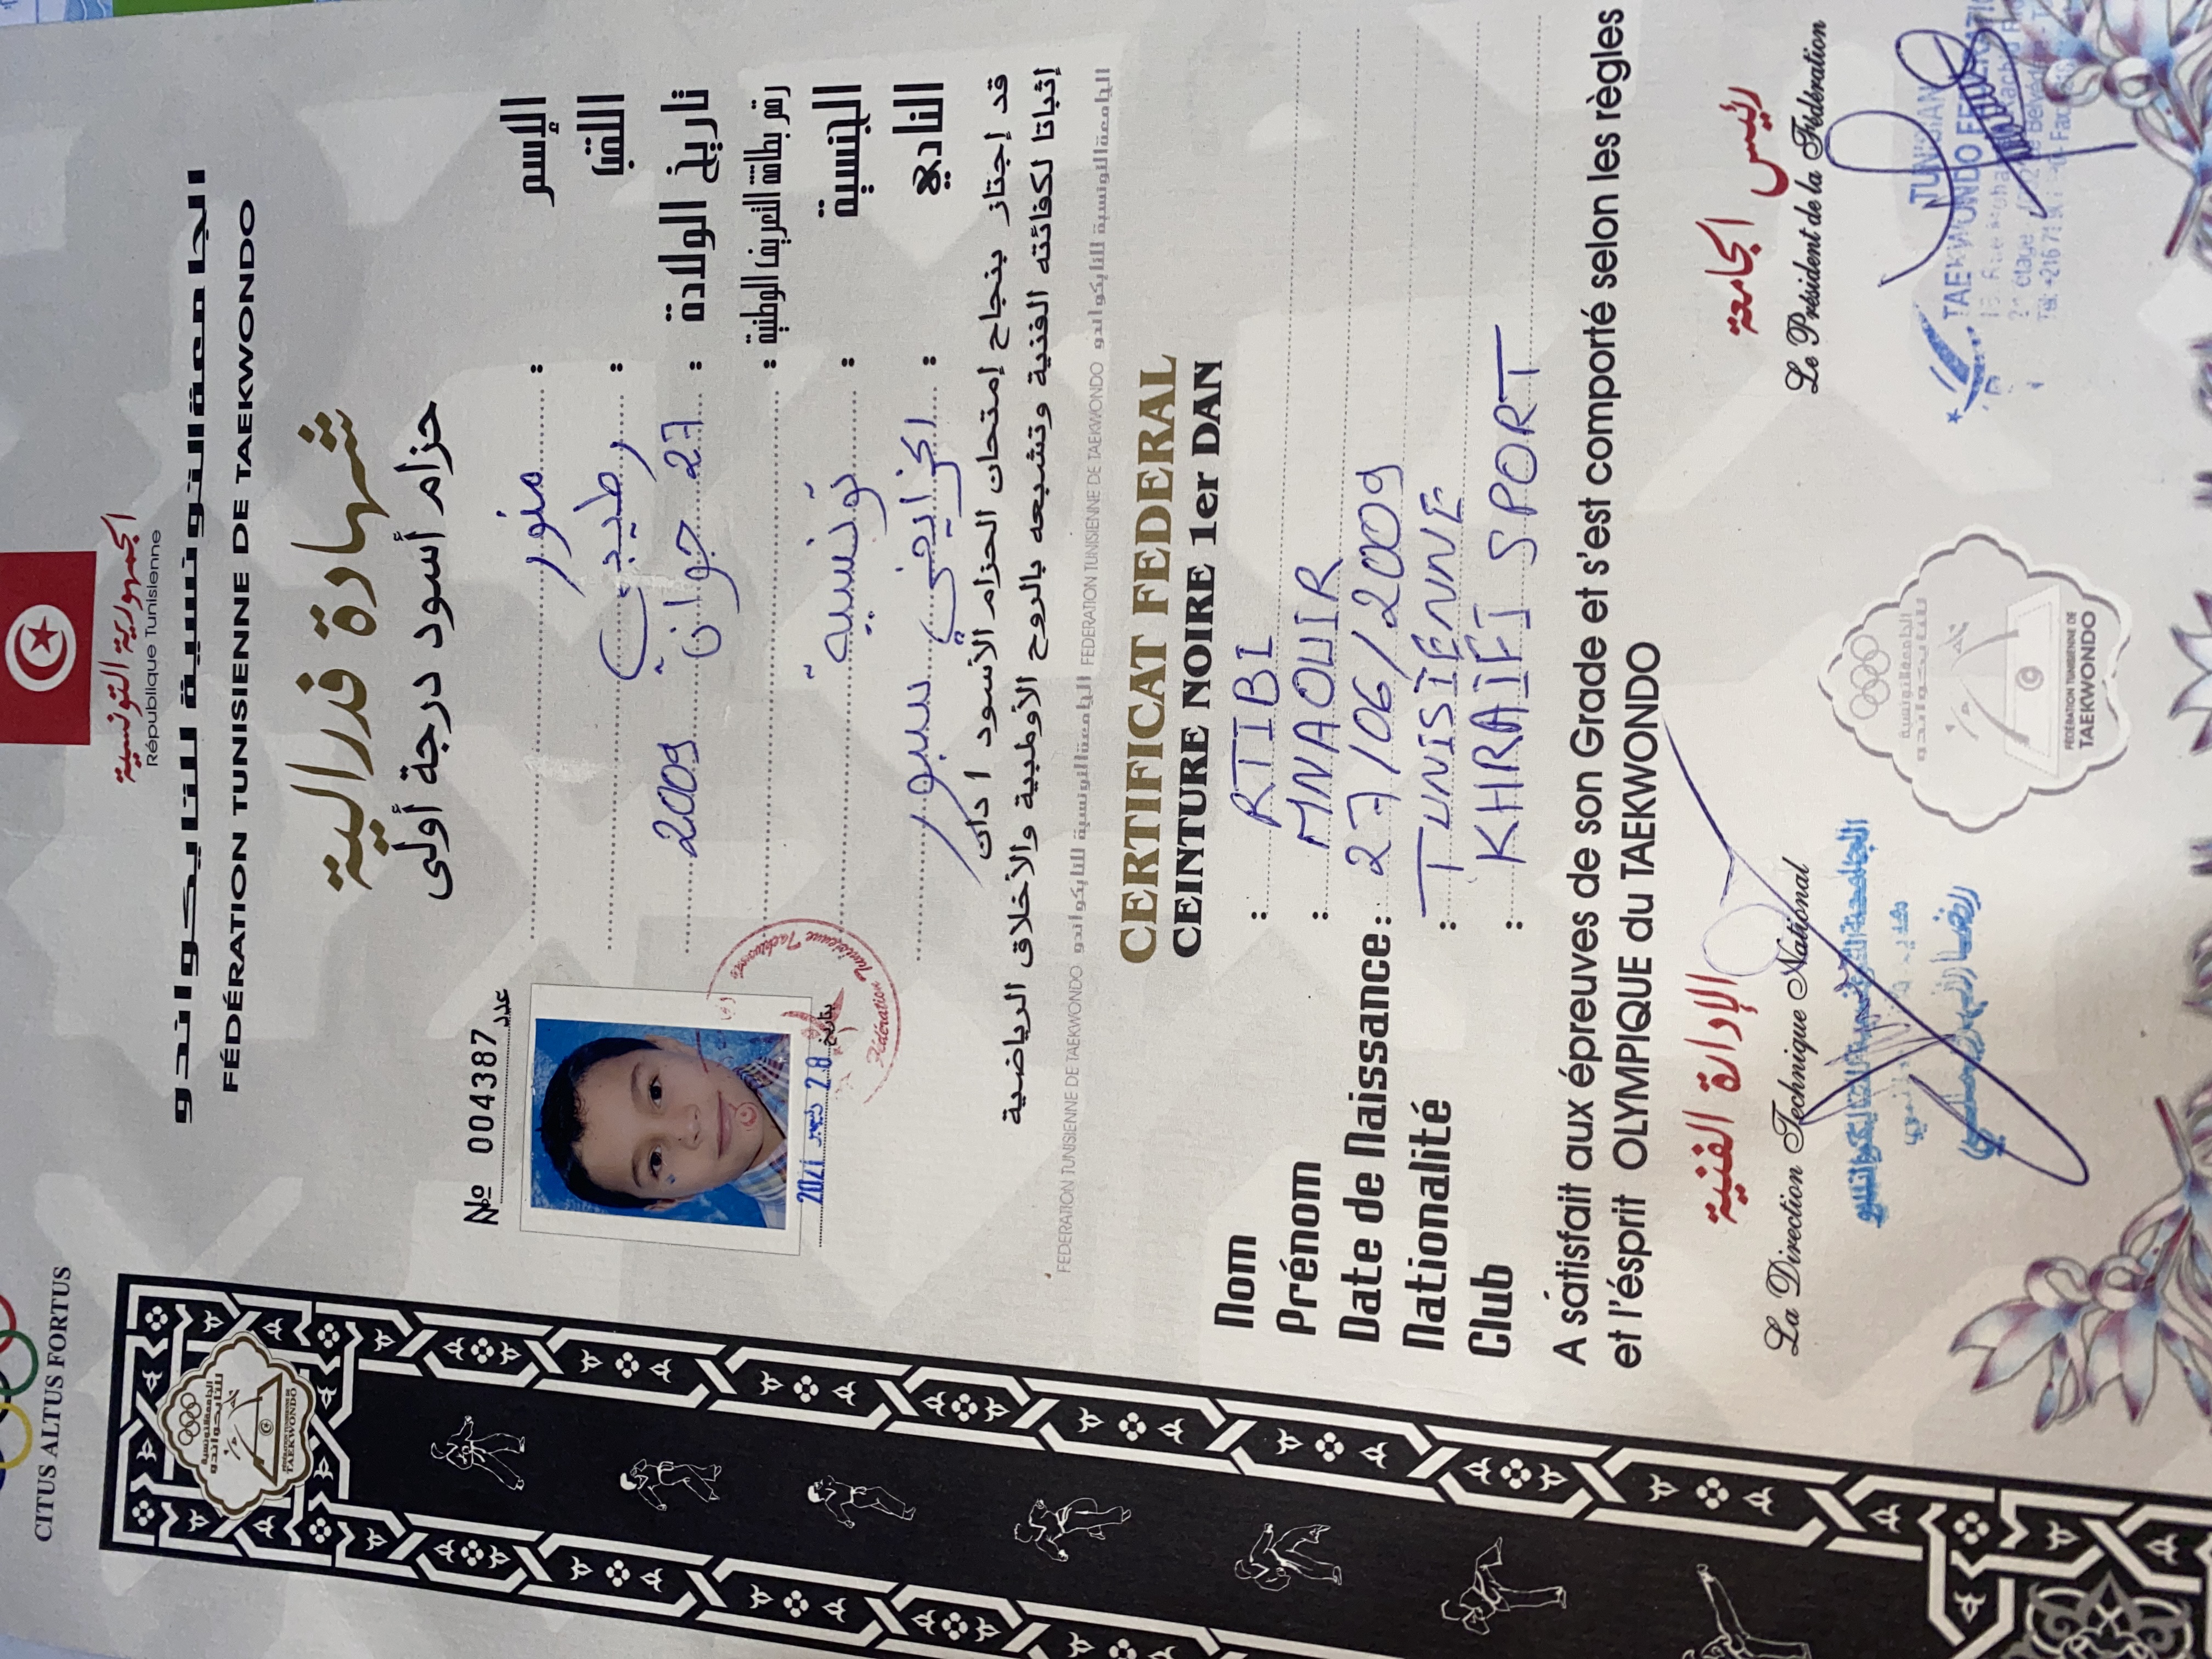 CITUS ALTUS FORTUS
الجمهورية التونسية
République Tunisienne
الجامعة التونسية للتايكواندو
FÉDÉRATION TUNISIENNE DE TAEKWONDO
شهادة فدرالية
حزام أسود درجة أولى
№ 004387 عدد
الإسم : منور
اللقب : رطيبي
تاريخ الولادة : 27 جوان 2009
رقم بطاقة التعريف الوطنية :
الجنسية : تونسية
النادي : الخرايفي سبور
بتاريخ 28 ديسمبر 2021
قد إجتاز بنجاح إمتحان الحزام الأسود 1 دان
إثباتا لكفائته الفنية وتشبعه بالروح الأولمبية والأخلاق الرياضية
FEDERATION TUNISIENNE DE TAEKWONDO الجامعة التونسية للتايكواندو FEDERATION TUNISIENNE DE TAEKWONDO الجامعة التونسية للتايكواندو
CERTIFICAT FEDERAL
CEINTURE NOIRE 1er DAN
Nom : RTIBI
Prénom : MNAOUIR
Date de Naissance : 27/06/2009
Nationalité : TUNISIENNE
Club : KHRAIFI SPORT
A satisfait aux épreuves de son Grade et s'est comporté selon les règles
et l'ésprit OLYMPIQUE du TAEKWONDO
الإدارة الفنية
La Direction Technique National
رئيس الجامعة
Le Président de la Fédération
الجامعة التونسية للتايكواندو
FÉDÉRATION TUNISIENNE DE
TAEKWONDO
TUNISIAN
TAEKWONDO FEDERATION